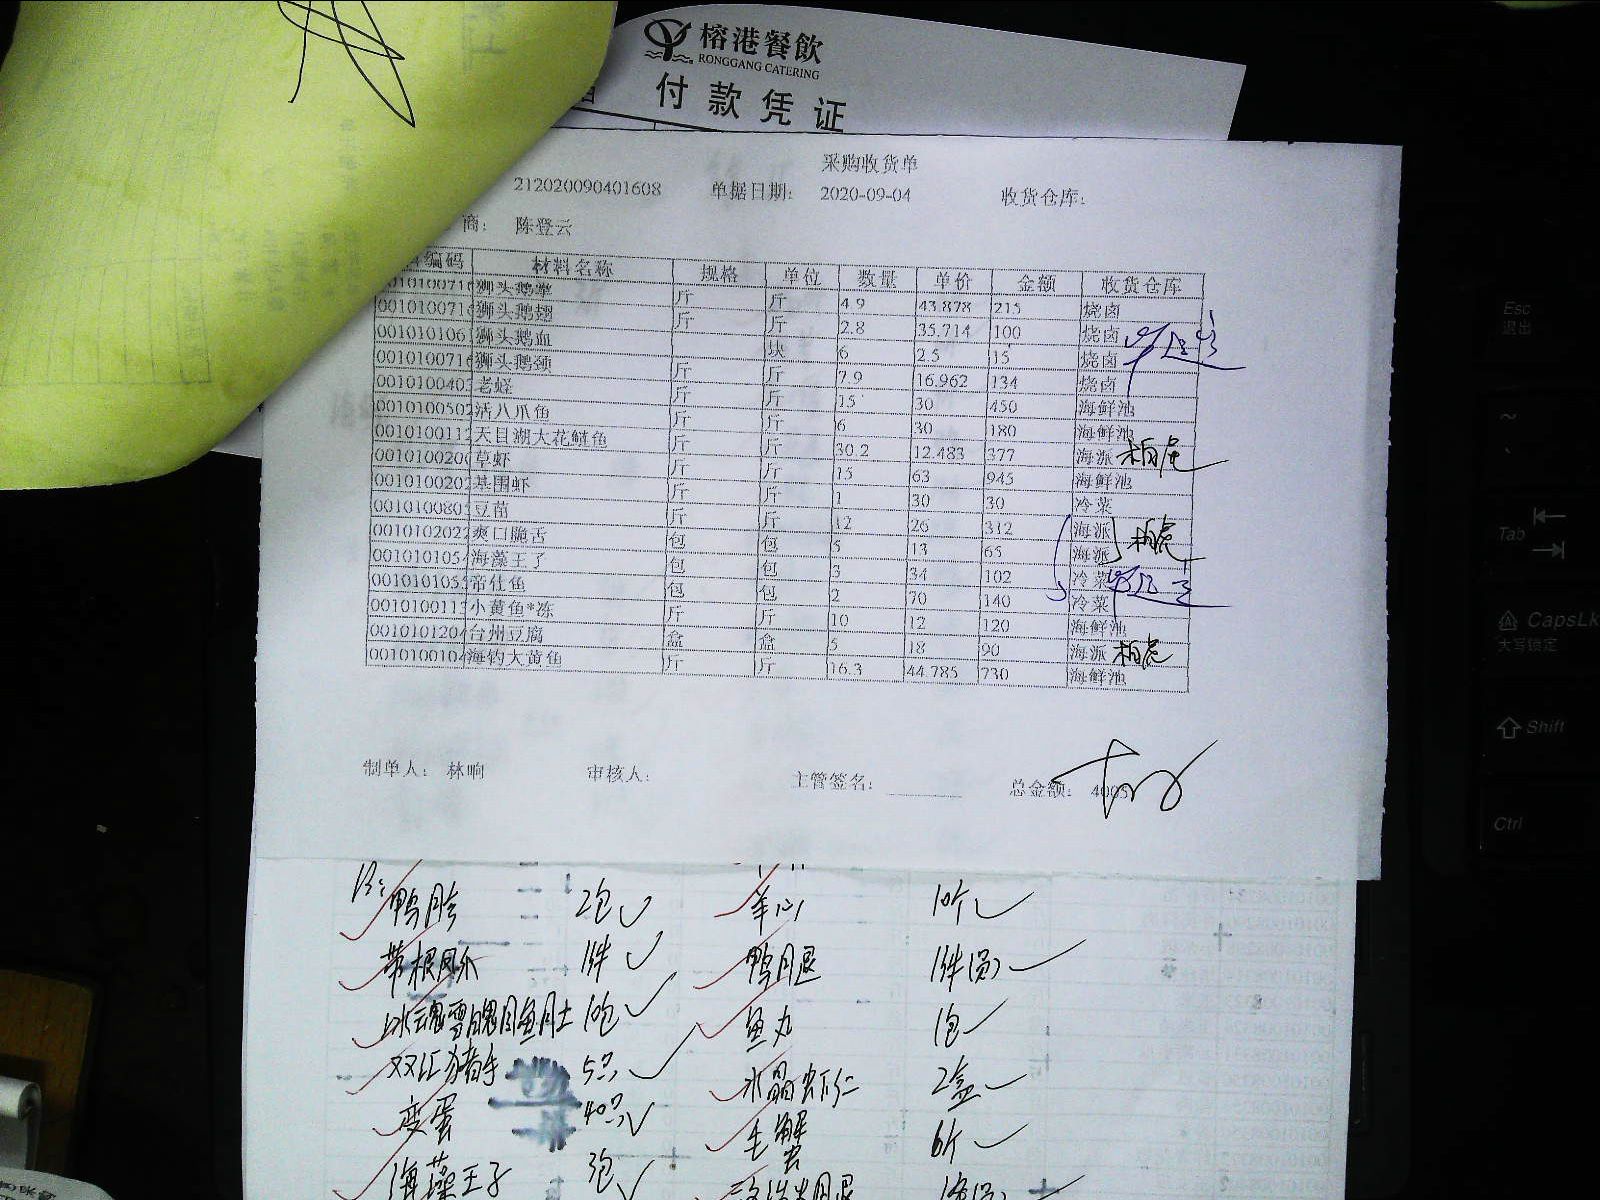 榕港餐飲
RONGGANG CATERING
付款凭证
采购收货单
212020090401608 单据日期: 2020-09-04 收货仓库:
商: 陈登云
编码 材料名称 规格 单位 数量 单价 金额 收货仓库
狮头鹅掌 斤 斤 4.9 43.878 215 烧卤
狮头鹅翅 斤 斤 2.8 35.714 100 烧卤
狮头鹅血 块 6 2.5 15 烧卤
狮头鹅颈 斤 斤 7.9 16.962 134 烧卤
0010100403 老蛏 斤 斤 15 30 450 海鲜池
0010100502 活八爪鱼 斤 斤 6 30 180 海鲜池
0010100112 天目湖大花鲢鱼 斤 斤 30.2 12.483 377 海派
0010100200 草虾 斤 斤 15 63 945 海鲜池
0010100202 基围虾 斤 斤 1 30 30 冷菜
001010080 豆苗 斤 斤 12 26 312 海派
0010102022 爽口脆舌 包 包 5 13 65 海派
001010105 海藻王了 包 包 3 34 102 冷菜
001010105 帝仕鱼 包 包 2 70 140 冷菜
001010011 小黄鱼*冻 斤 斤 10 12 120 海鲜池
001010120 台州豆腐 盒 盒 5 18 90 海派
001010010 海钓大黄鱼 斤 斤 16.3 44.785 730 海鲜池
制单人: 林响 审核人: 主管签名: 总金额: 4005
鸭胗 2包 羊心 10个
带根周尔 1件 鸭月退 1件(员)
10包 鱼丸 1包
双汇猪手 5只 水晶虾仁 2盒
变蛋 40只 毛蟹 6个
海藻王子 3包